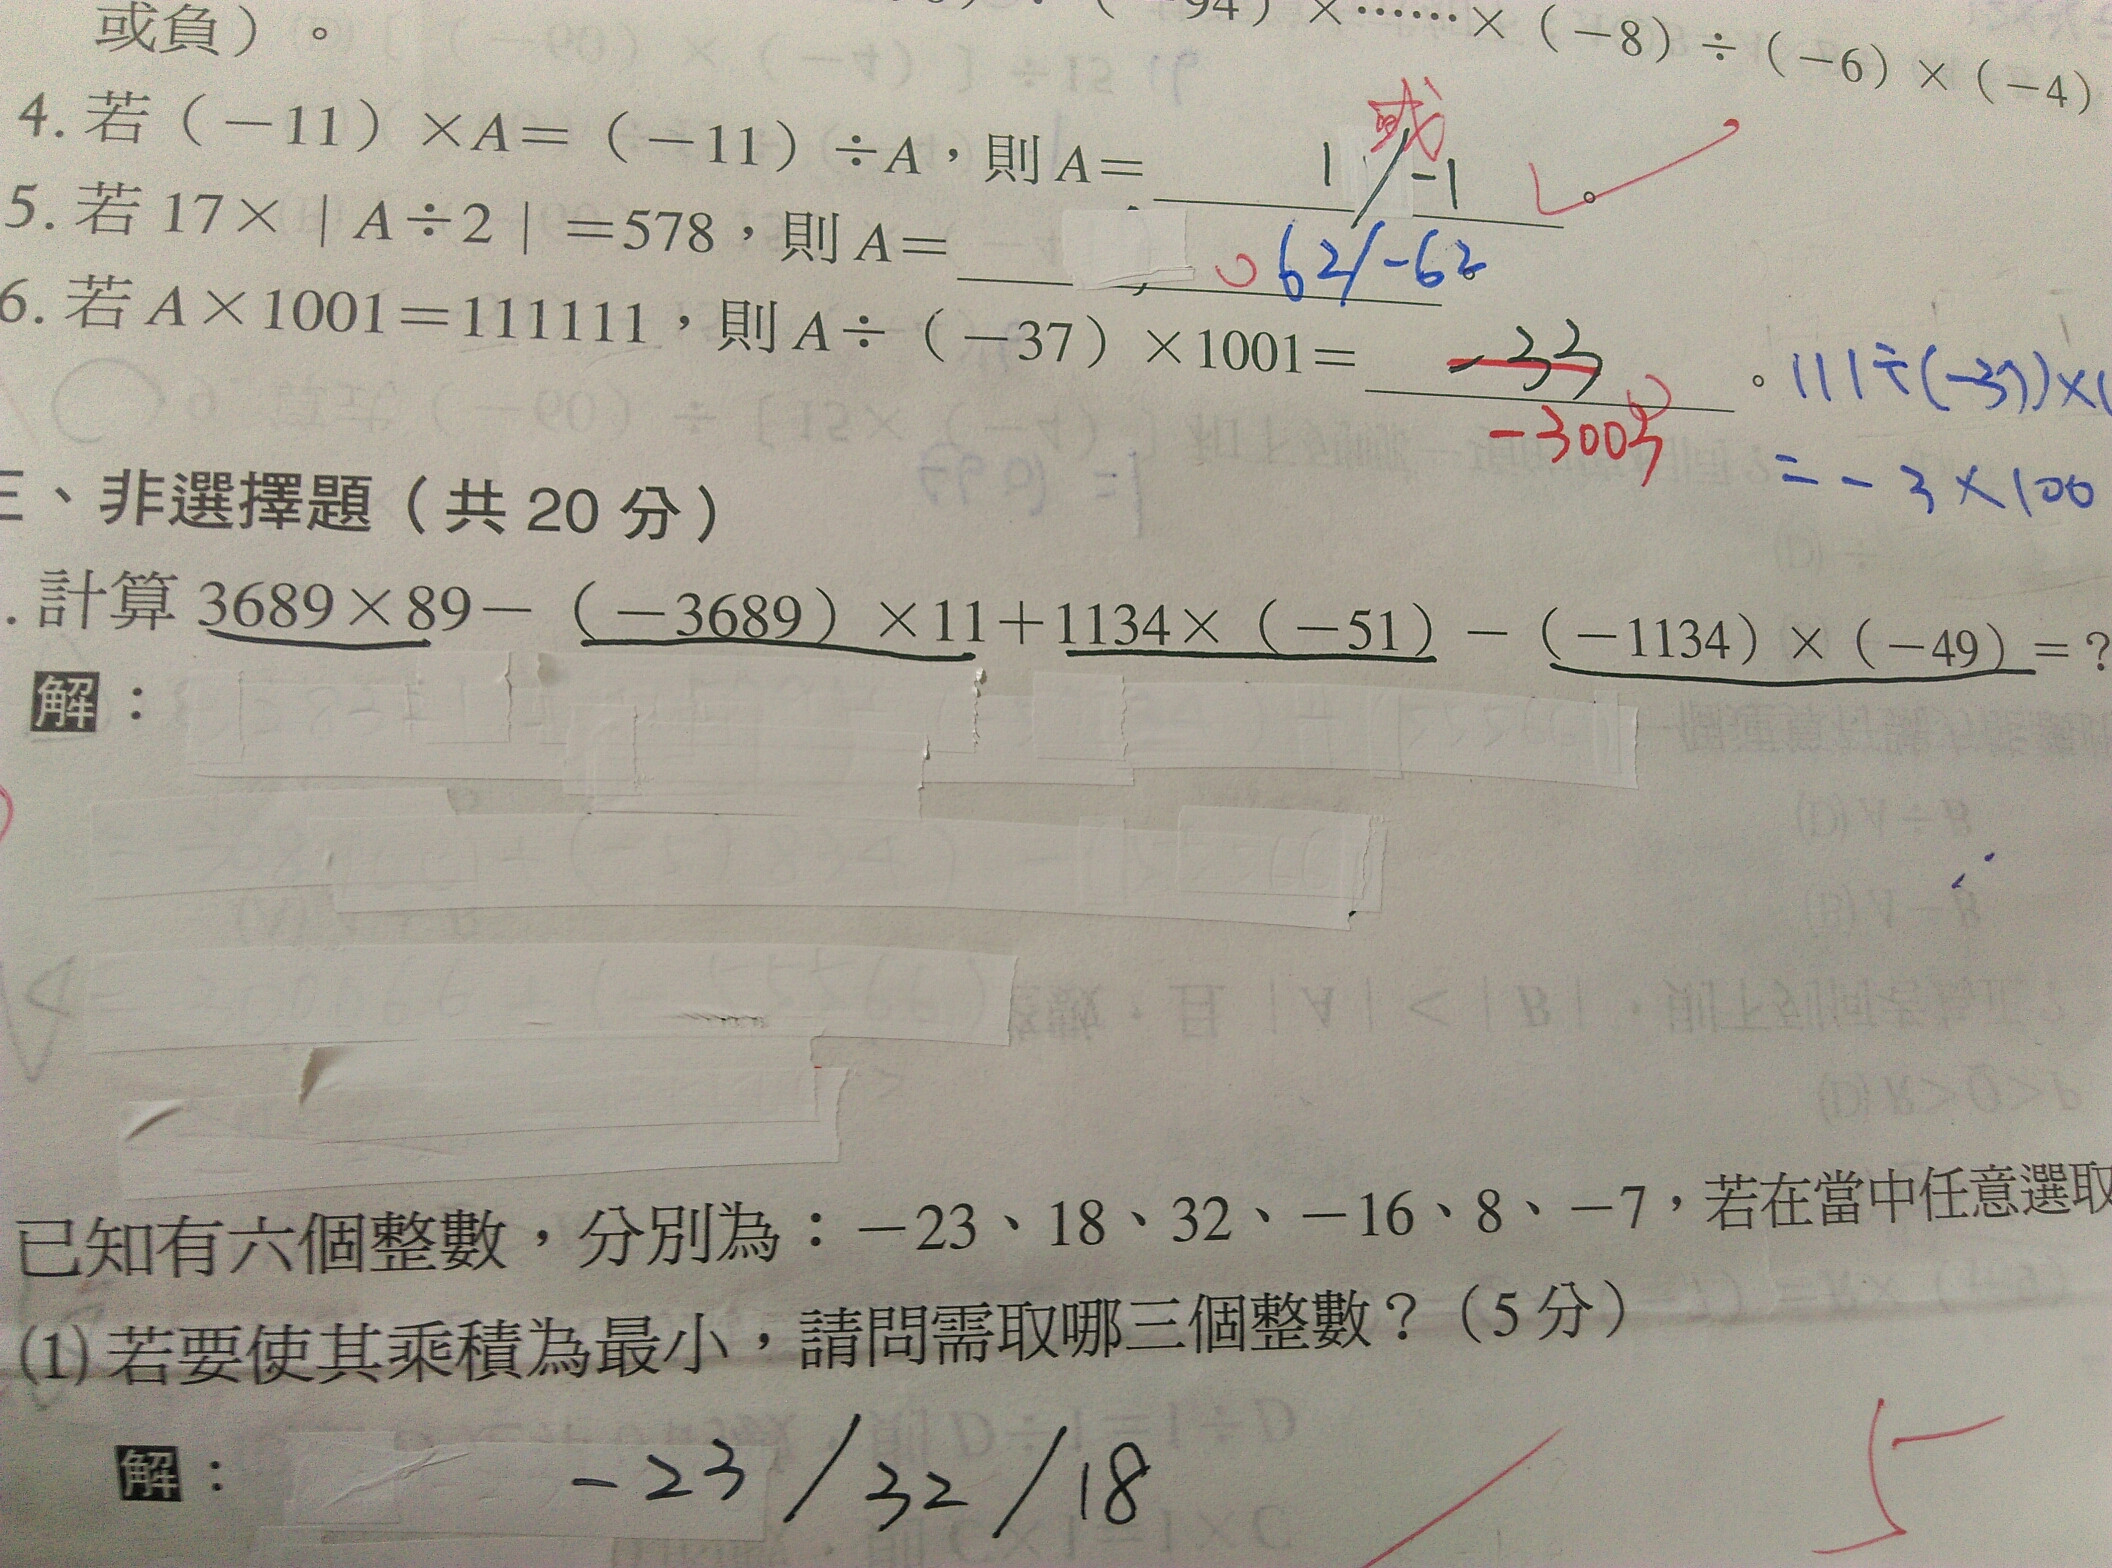 94）×……×（－8）÷（－6）×（－4）
或負）。
4. 若（－11）×A＝（－11）÷A，則 A＝ 1 / -1 。
或
5. 若 17×｜A÷2｜＝578，則 A＝ 62/-62
6. 若 A×1001＝111111，則 A÷（－37）×1001＝ -33 。 111÷(-37)×
-3003
= - 3 × 100
三、非選擇題（共 20 分）
. 計算 3689×89－（－3689）×11＋1134×（－51）－（－1134）×（－49）＝？
解：
已知有六個整數，分別為：－23、18、32、－16、8、－7，若在當中任意選取
(1) 若要使其乘積為最小，請問需取哪三個整數？（5 分）
解： -23 / 32 / 18
5